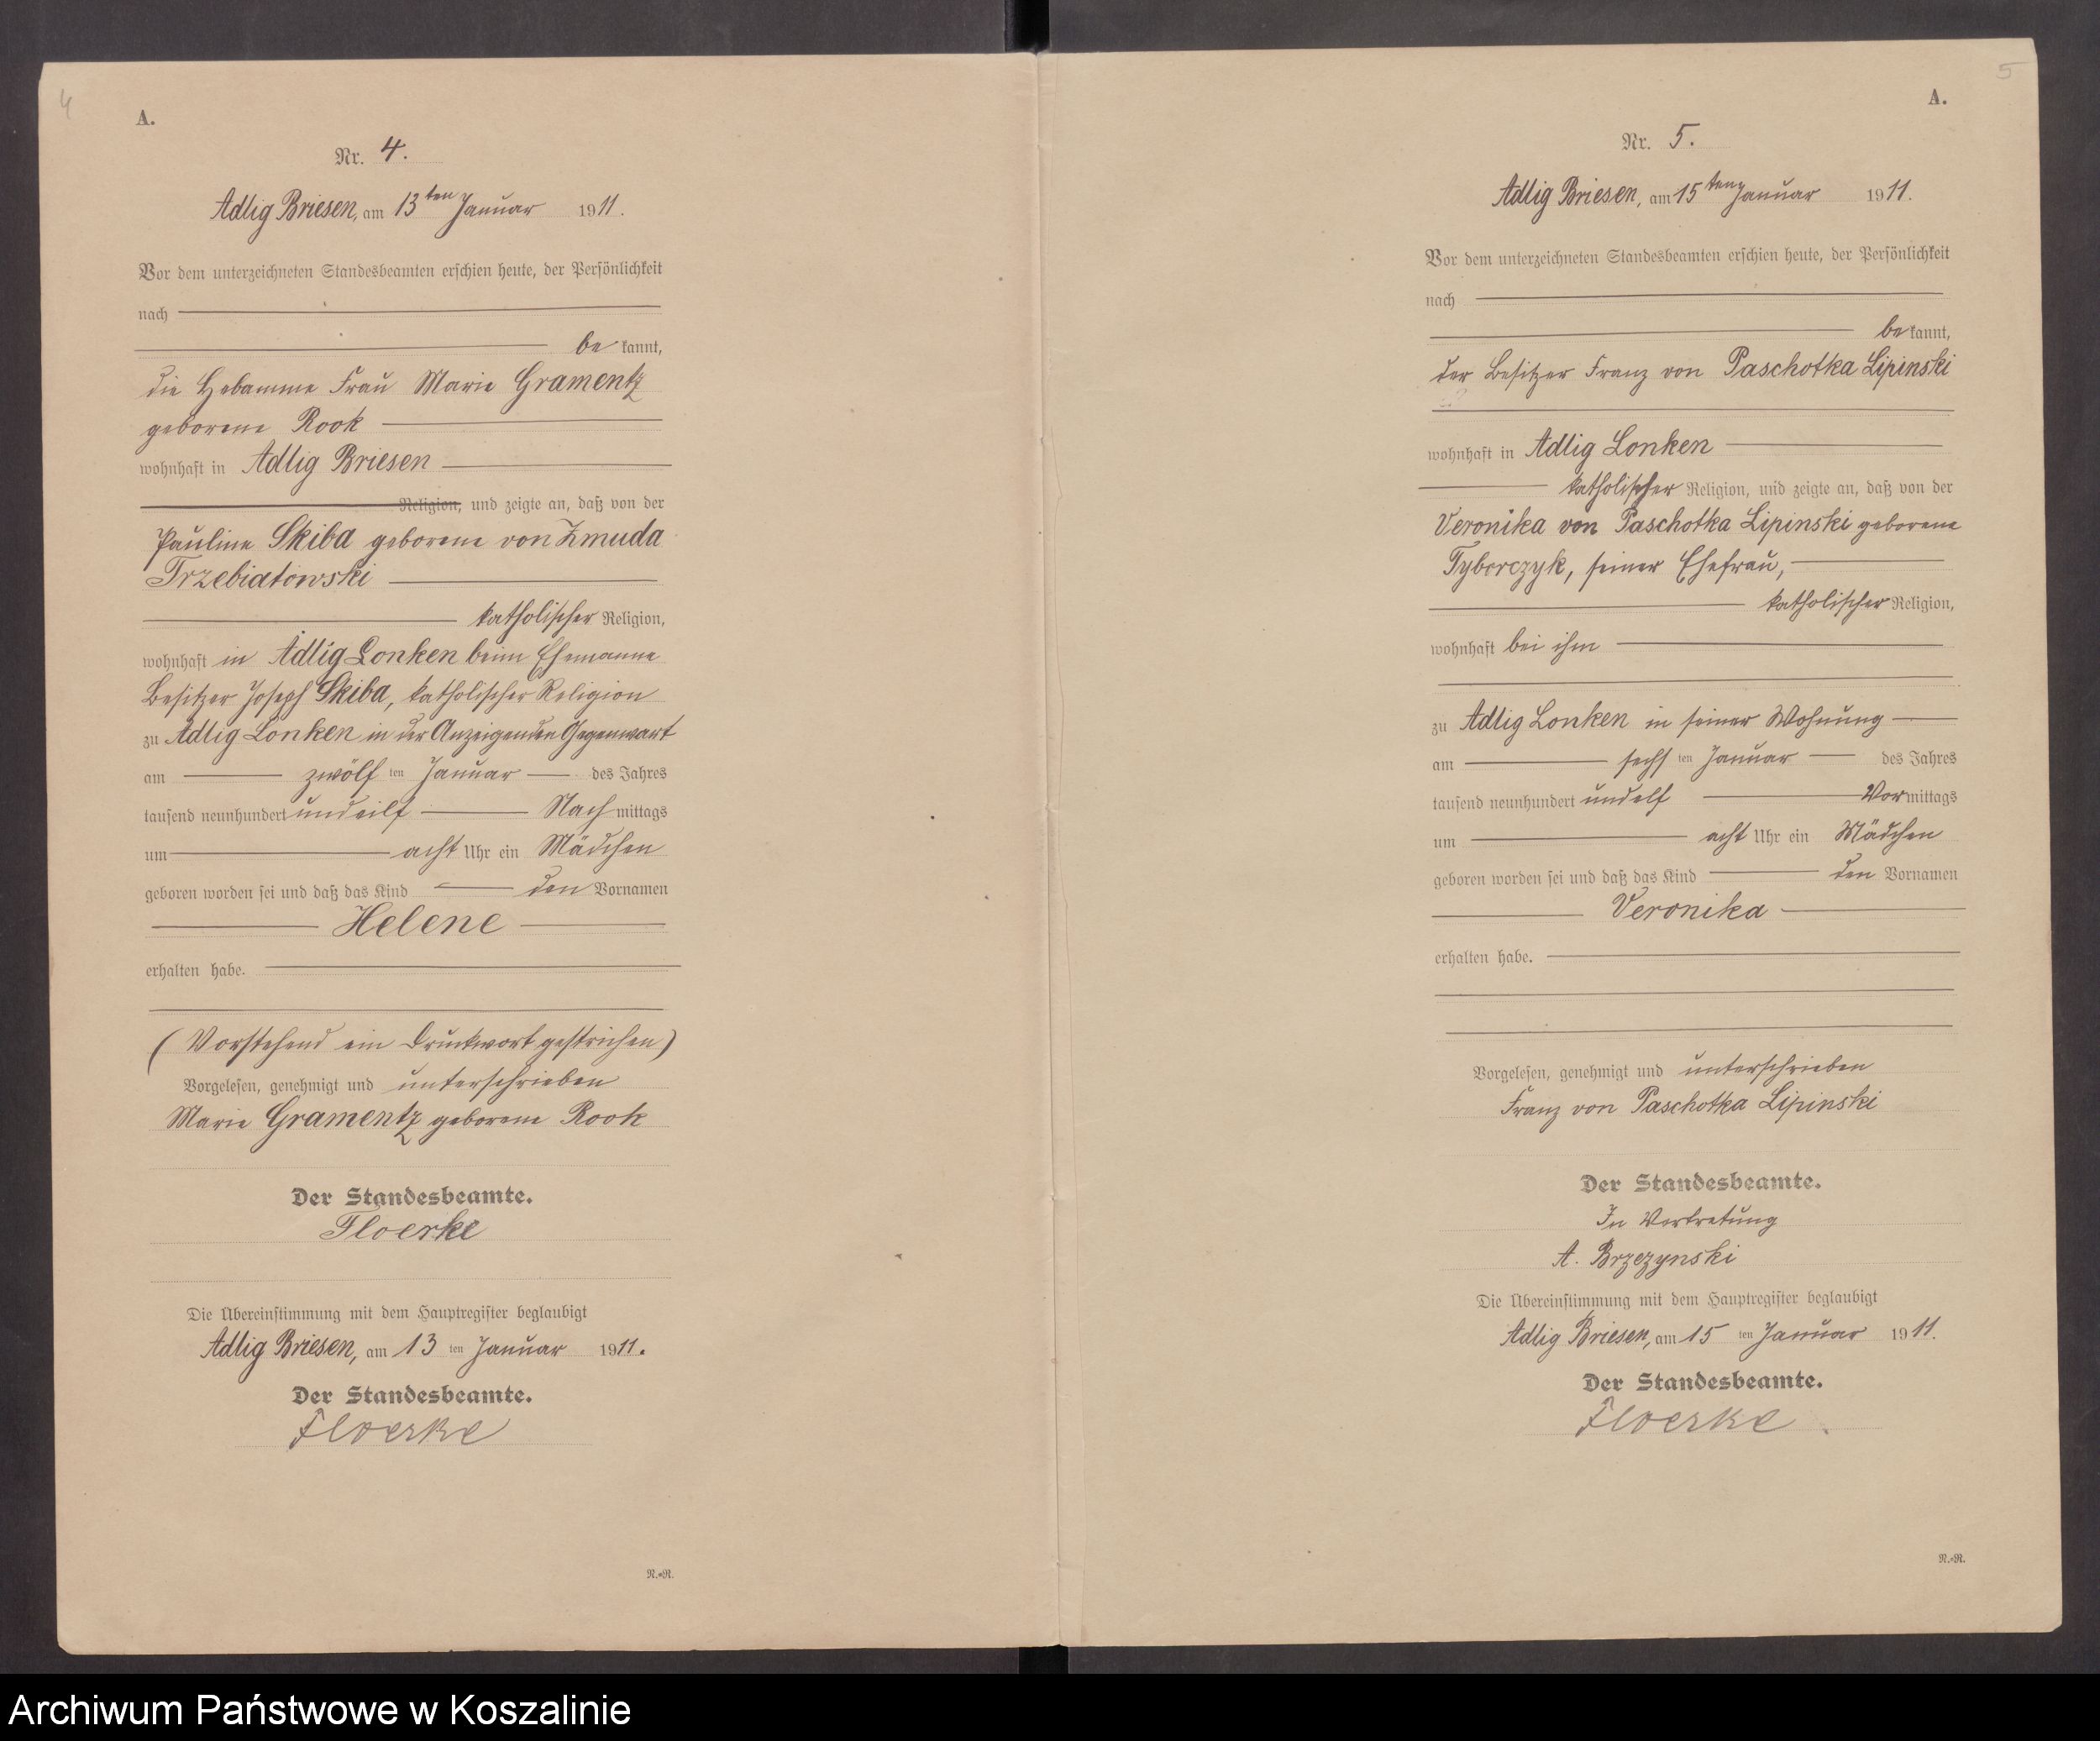 4
A.
Nr. 4.
Adlig Briesen, am 13ten Januar 1911.
Vor dem unterzeichneten Standesbeamten erschien heute, der Persönlichkeit
nach
be kannt,
die Hebamme Frau Marie Gramentz
geborene Rook
wohnhaft in Adlig Briesen
Religion, und zeigte an, daß von der
Pauline Skiba geborene von Zmuda
Trzebiatowski
katholischer Religion,
wohnhaft in Adlig Lonken beim Ehemanne
Besitzer Joseph Skiba, katholischer Religion
zu Adlig Lonken in der Anzeigenden Gegenwart
am zwölf ten Januar des Jahres
tausend neunhundert und eilf Nach mittags
um acht Uhr ein Mädchen
geboren worden sei und daß das Kind den Vornamen
Helene
erhalten habe.
(Vorstehend ein Druckwort gestrichen)
Vorgelesen, genehmigt und unterschrieben
Marie Gramentz geborene Rook
Der Standesbeamte.
Floerke
Die Übereinstimmung mit dem Hauptregister beglaubigt
Adlig Briesen, am 13 ten Januar 1911.
Der Standesbeamte.
Floerke
N.=N.
5
A.
Nr. 5.
Adlig Briesen, am 15ten Januar 1911.
Vor dem unterzeichneten Standesbeamten erschien heute, der Persönlichkeit
nach
be kannt,
der Besitzer Franz von Paschotka Lipinski
wohnhaft in Adlig Lonken
katholischer Religion, und zeigte an, daß von der
Veronika von Paschotka Lipinski geborene
Tyborczyk, seiner Ehefrau,
katholischer Religion,
wohnhaft bei ihm
zu Adlig Lonken in seiner Wohnung
am sechs ten Januar des Jahres
tausend neunhundert und elf Vor mittags
um acht Uhr ein Mädchen
geboren worden sei und daß das Kind den Vornamen
Veronika
erhalten habe.
Vorgelesen, genehmigt und unterschrieben
Franz von Paschotka Lipinski
Der Standesbeamte.
In Vertretung
A. Brzezynski
Die Übereinstimmung mit dem Hauptregister beglaubigt
Adlig Briesen, am 15 ten Januar 1911.
Der Standesbeamte.
Floerke.
N.=N.
Archiwum Państwowe w Koszalinie